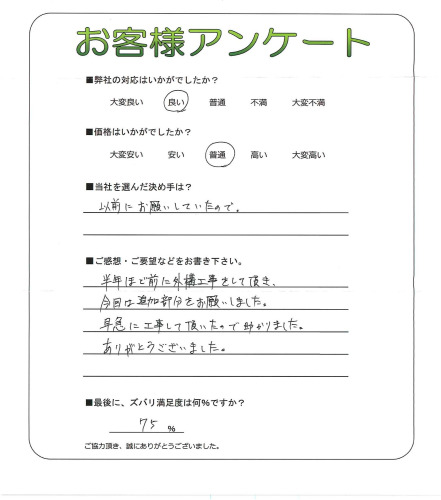 お客様アンケート
■弊社の対応はいかがでしたか?
大変良い 良い 普通 不満 大変不満
■価格はいかがでしたか?
大変安い 安い 普通 高い 大変高い
■当社を選んだ決め手は?
以前にお願いしていたので。
■ご感想・ご要望などをお書き下さい。
半年ほど前に外構工事をして頂き、
今回は追加部分をお願いしました。
早急に工事して頂いたので助かりました。
ありがとうございました。
■最後に、ズバリ満足度は何%ですか?
75 %
ご協力頂き、誠にありがとうございました。